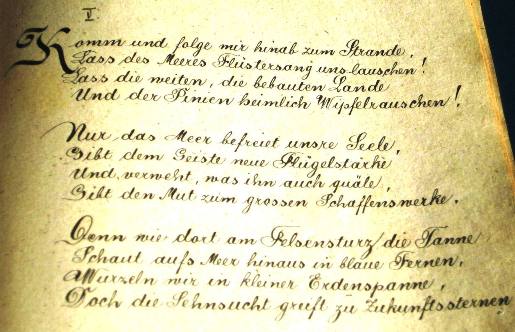 V.
Komm und folge mir hinab zum Strande,
Lass des Meeres Flüstersang uns lauschen!
Lass die weiten, die bebauten Lande
Und der Pinien heimlich Wipfelrauschen!
Nur das Meer befreiet unsre Seele,
Gibt dem Geiste neue Flügelstärke
Und verweht, was ihn auch quäle,
Gibt den Mut zum grossen Schaffenswerke.
Denn wie dort am Felsensturz die Tanne
Schaut aufs Meer hinaus in blaue Fernen,
Wurzeln wir in kleiner Erdenspanne,
Doch die Sehnsucht greift zu Zukunftssternen